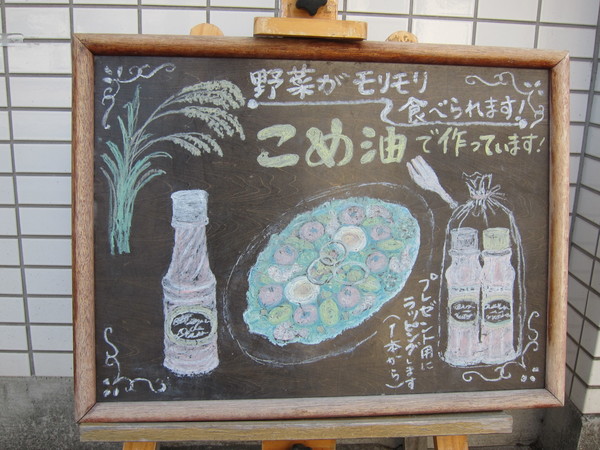 野菜がモリモリ
食べられます!
こめ油で作っています!
プレゼント用に
ラッピングします
(1本から)